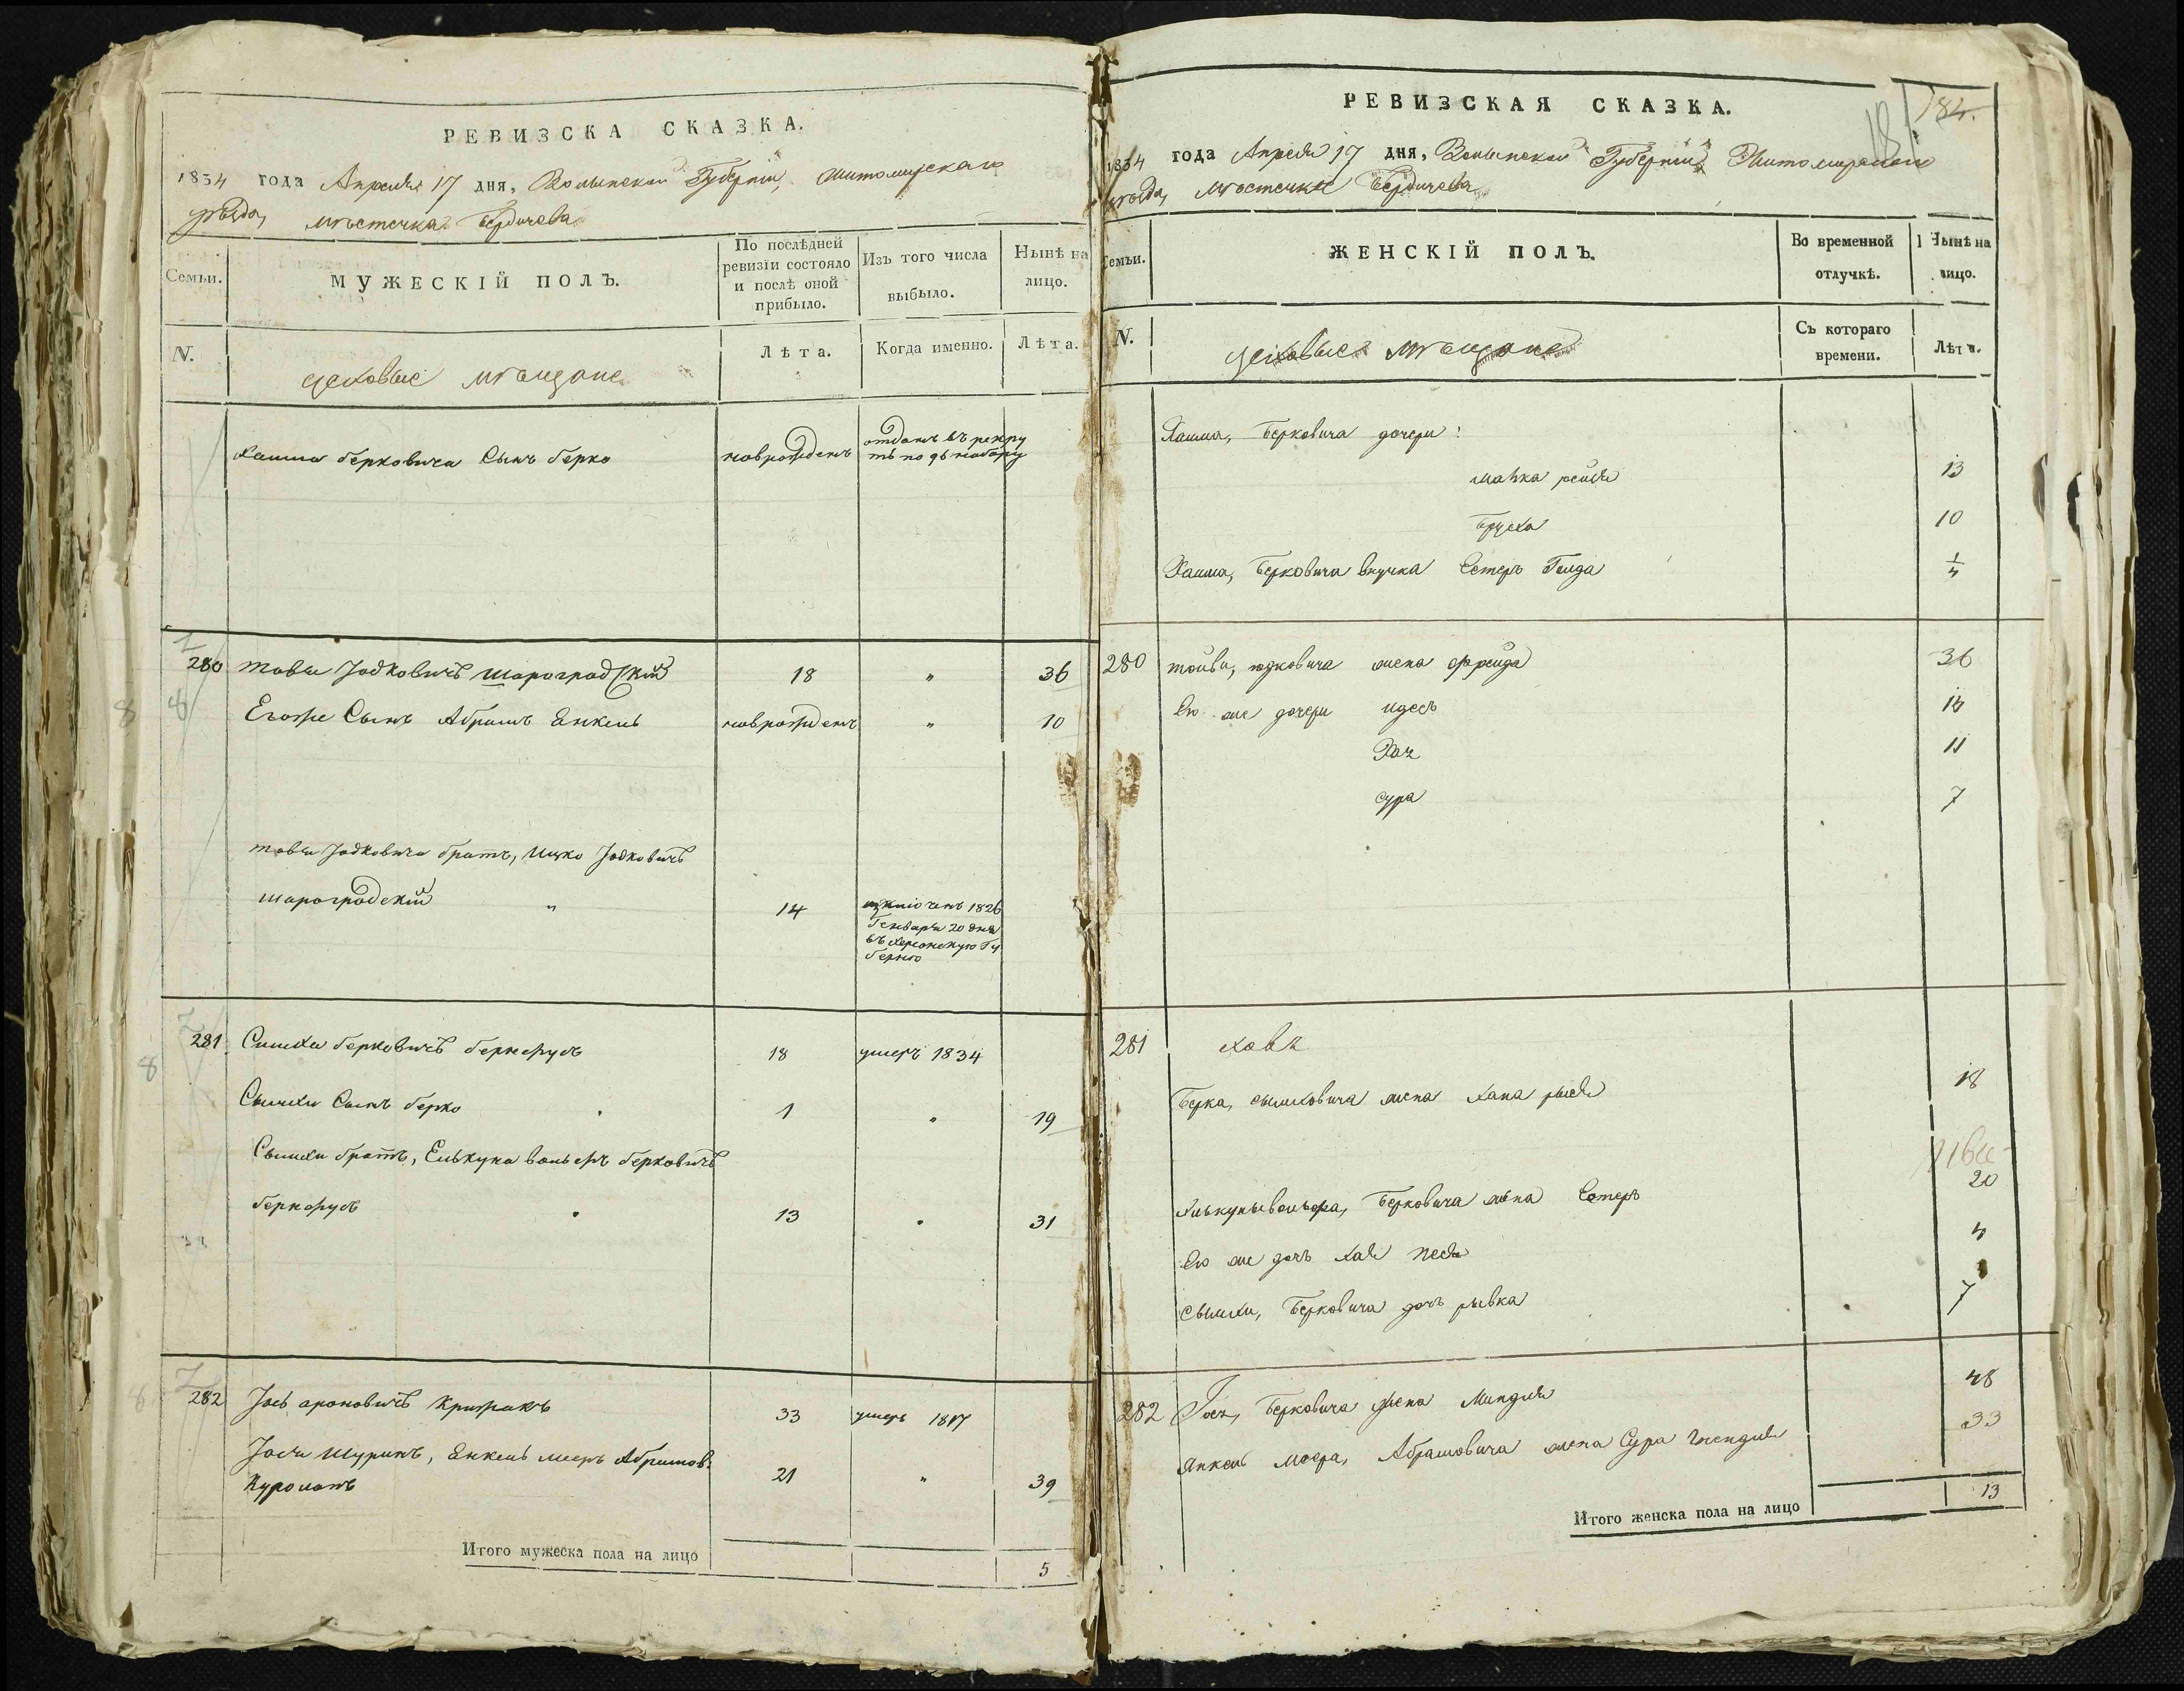 РЕВИЗСКА СКАЗКА.
1834 года Апреля 17 дня, Волынской Губернiи, Житомирскаго
уѣзда, мѣстечка Бердичева
Семьи.
МУЖЕСКІЙ ПОЛЪ.
По послѣдней
ревизіи состояло
и послѣ оной
прибыло.
Изъ того числа
выбыло.
Нынѣ на
лицо.
N.
цеховые мѣщане
Лѣта.
Когда именно.
Лѣта.
Хаима берковича Сынъ берко новрожденъ отданъ въ рекру
ты по набору
280 товiи Іодковичъ шароградскiй 18 " 36
Егоже Сынъ Абрамъ Енкель новрожденъ " 10
товiи Іодковича братъ, Ицко Іодковичъ
шароградскiй " 14 1826
Генваря 20 дня
въ херсонскую Гу
бернiю
281 Симхи берковичъ 18 умеръ 1834
Сымхи Сынъ берко 1 " 19
Сымхи братъ, Елькуна вольфъ берковичъ
13 31
282 Іось ароновичъ 33 умеръ 1817
Іоси Шуринъ, Енкель меер Абрамов.
21 " 39
Итого мужеска пола на лицо 5
РЕВИЗСКАЯ СКАЗКА.
184.
181
1834 года Апреля 17 дня, Волынской Губернiи, Житомирскаго
уѣзда, мѣстечка Бердичева
Семьи.
ЖЕНСКІЙ ПОЛЪ.
Во временной
отлучкѣ.
Нынѣ на
лицо.
N.
цеховые мѣщане
Съ котораго
времени.
Лѣта.
Хаима, Берковича дочери:
малка рейзя 13
Бруха 10
Хаима, Берковича внучка Естеръ Голда 1/4
280 товiи, юдковича жена фрейда 36
Ею же дочери идесъ 14
Хая 11
сура 7
281
Берка, сымховича жена хана рыся 18
Берковича жена Естеръ 20
Ею же дочь хая песя 4
сымхи, Берковича дочь рывка 7
282 Іося, Берковича жена Миндля 48
Янкеля меера, Абрамовича жена Сура Гнендля 33
Итого женска пола на лицо 13